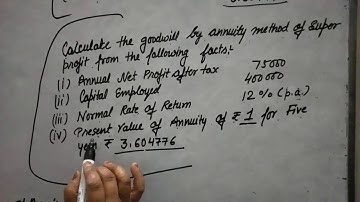 Calculate the goodwill by annuity method of Super
profit from the following facts:-
(i) Annual Net Profit after tax 75000
(ii) Capital Employed 400000
(iii) Normal Rate of Return 12% (p.a.)
(iv) Present Value of Annuity of ₹ 1 for Five
₹ 3.604776